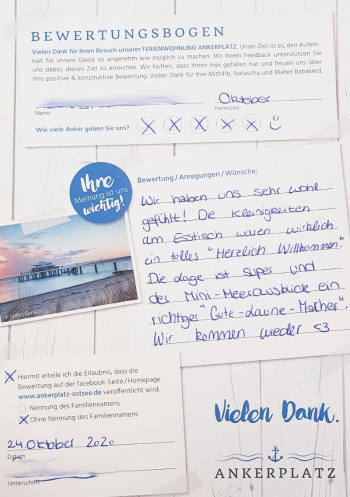 BEWERTUNGSBOGEN
Vielen Dank für Ihren Besuch unserer FERIENWOHNUNG ANKERPLATZ. Unser Ziel ist es, den Aufent-
halt für unsere Gäste so angenehm wie möglich zu machen. Mit Ihrem Feedback unterstützen Sie
uns dabei, dieses Ziel zu erreichen. Wir hoffen, dass Ihnen hier gefallen hat und freuen uns über
Ihre positive & konstruktive Bewertung. Vielen Dank für Ihre Mithilfe, Natascha und Maher Babakerd.
Oktober
Name
Ferienzeit
Wie viele Anker geben Sie uns? X X X X X
Ihre
Meinung ist uns
wichtig!
Bewertung / Anregungen / Wünsche:
Wir haben uns sehr wohl
gefühlt! Die Kleinigkeiten
am Esstisch waren wirklich
ein tolles "Herzlich Willkommen".
Die Lage ist super und
der Mini-Meerausblick ein
richtiger "Gute-Laune-Macher".
Wir kommen wieder <3
X Hiermit erteile ich die Erlaubnis, dass die
Bewertung auf der facebook-Seite / Homepage
www.ankerplatz-ostsee.de veröffentlicht wird.
Nennung des Familiennamens
X Ohne Nennung des Familiennamens
24. Oktober 2020
Datum
Unterschrift
Vielen Dank.
ANKERPLATZ